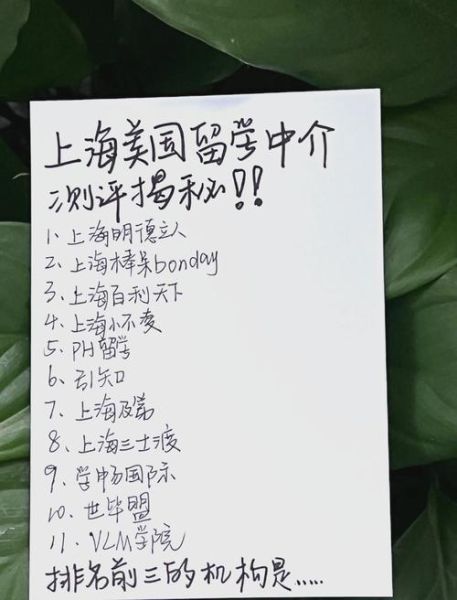 上海美国留学中介
测评揭秘!!
1、上海明德立人
2、上海棒呆bonday
3、上海百利天下
4、上海小不凌
5、PH留学
6、引知
7、上海及第
8、上海三士渡
9、学畅国际
10、世毕盟
11、VLM学院
排名前三的机构是.....